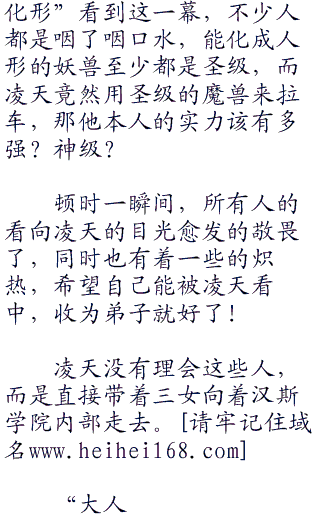 化形”看到这一幕，不少人
都是咽了咽口水，能化成人
形的妖兽至少都是圣级，而
凌天竟然用圣级的魔兽来拉
车，那他本人的实力该有多
强？神级？
顿时一瞬间，所有人的
看向凌天的目光愈发的敬畏
了，同时也有着一些的炽
热，希望自己能被凌天看
中，收为弟子就好了！
凌天没有理会这些人，
而是直接带着三女向着汉斯
学院内部走去。[请牢记住域
名www.heihei168.com]
“大人